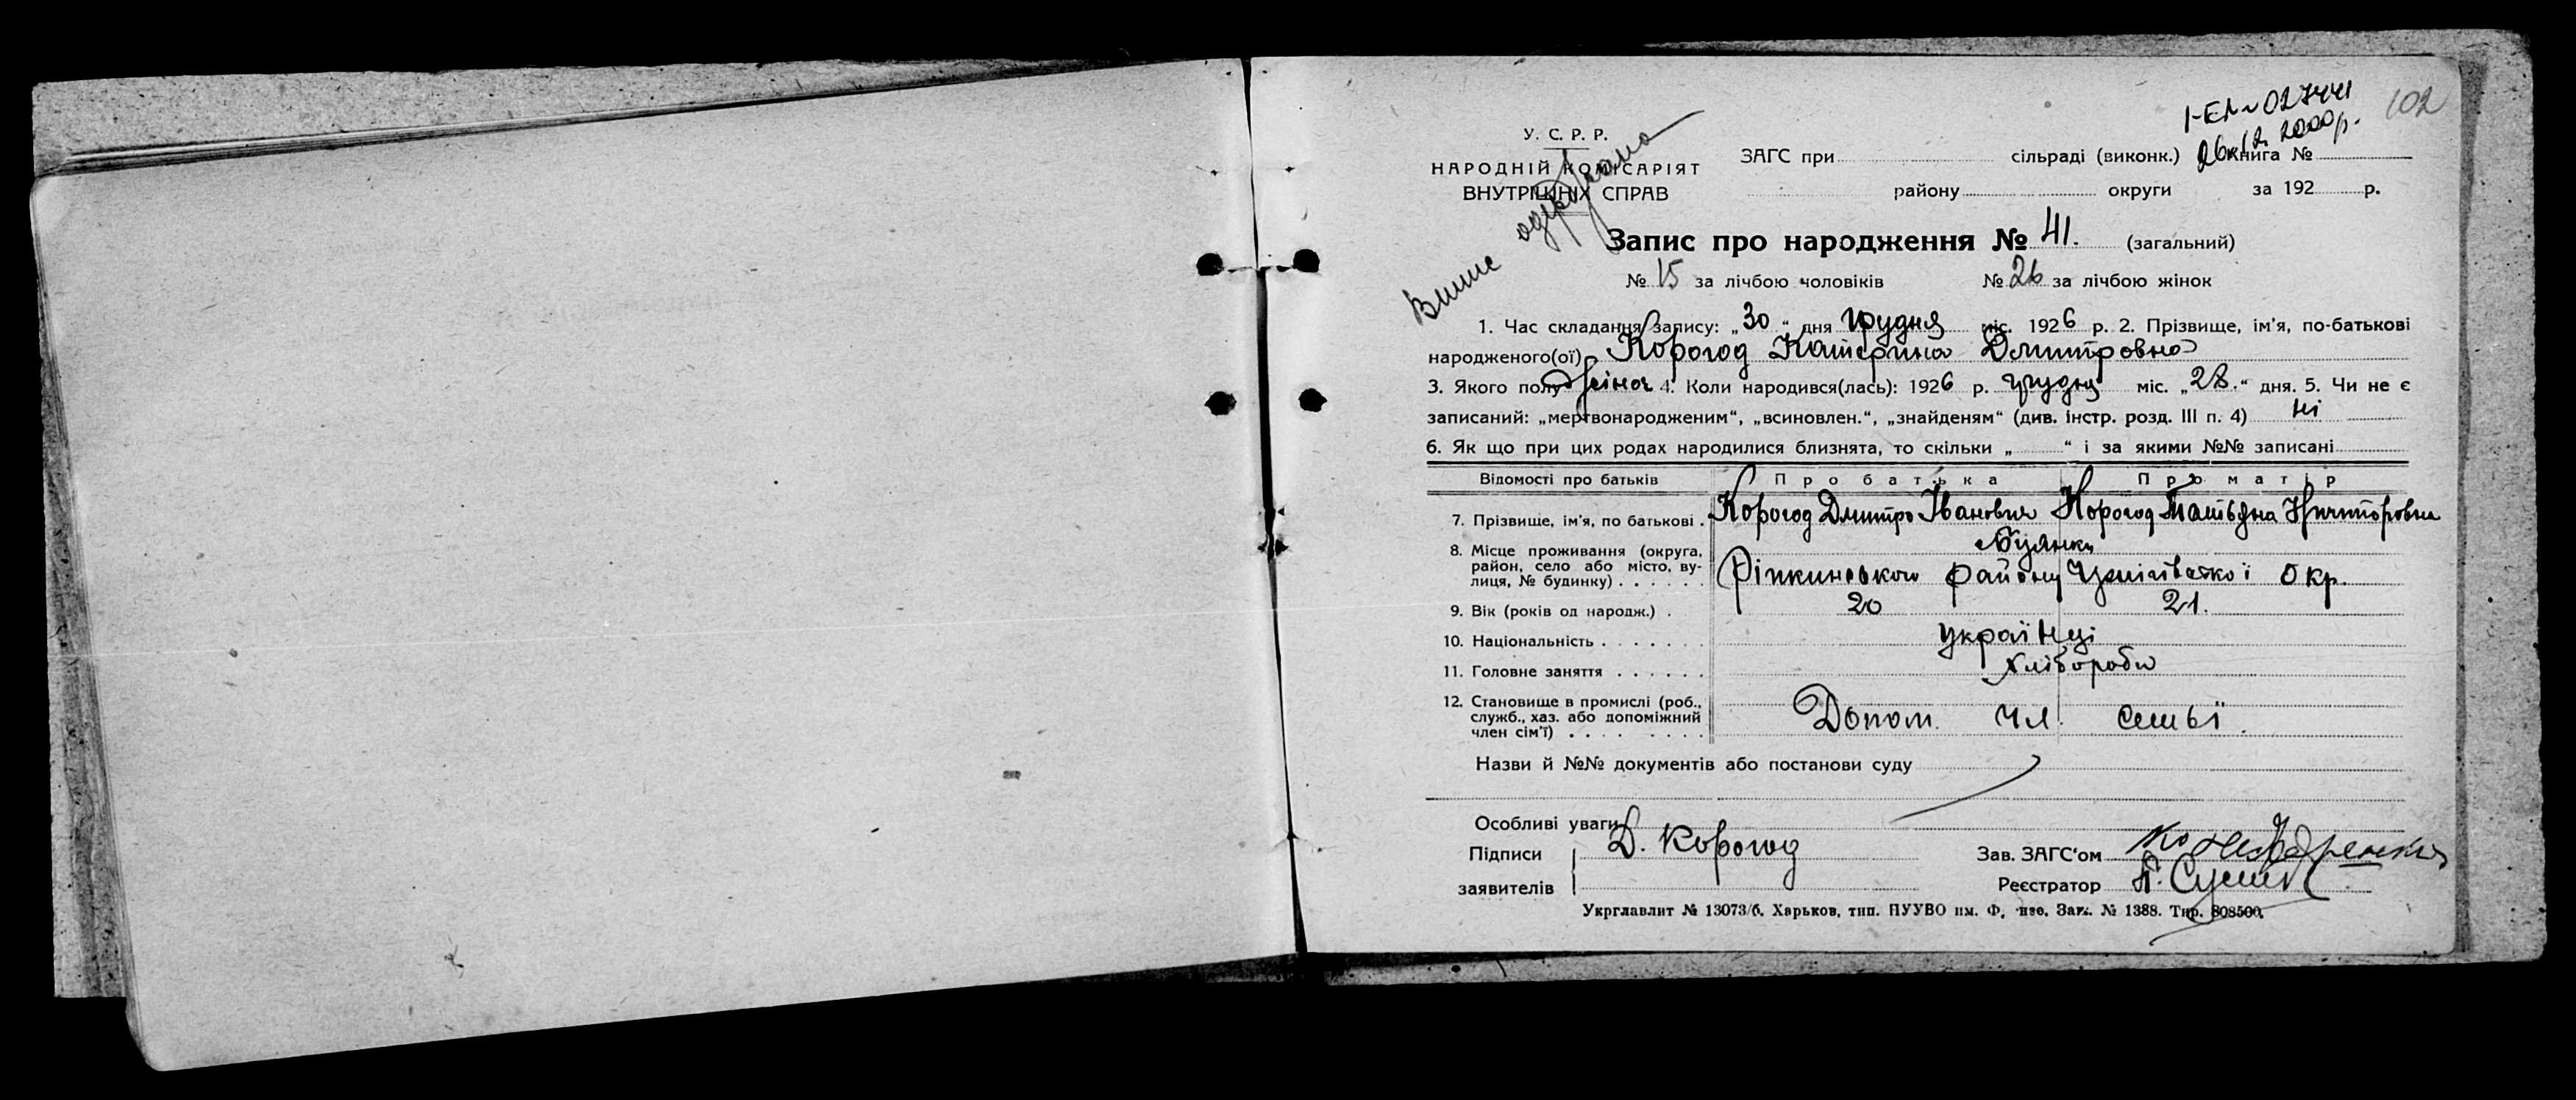 І-ЕЛ № 027441
26/12 2000р.
102
Випис одержано
У. С. Р. Р.
НАРОДНІЙ КОМІСАРІЯТ
ВНУТРІШНІХ СПРАВ
ЗАГС при сільраді (виконк.) Книга №
району округи за 192 р.
Запис про народження № 41. (загальний)
№ 15 за лічбою чоловіків № 26 за лічбою жінок
1. Час складання запису: „30“ дня Грудня міс. 1926 р. 2. Прізвище, ім'я, по-батькові
народженого(ої) Корогод Катерина Дмитровна
3. Якого полу жіноч 4. Коли народився(лась): 1926 р. грудня міс. „28.“ дня. 5. Чи не є
записаний: „мертвонародженим“, „всиновлен.“, „знайденям“ (див. інстр. розд. III п. 4) ні
6. Як що при цих родах народилися близнята, то скільки „ “ і за якими №№ записані
Відомості про батьків Про батька Про матір
7. Прізвище, ім'я, по батькові . Корогод Дмитро Іванович Корогод Матвьяна Ничипоровна
8. Місце проживання (округа, район, село або місто, вулиця, № будинку) . . . . . .
Буянки
Ріпкинського району Чернігівської Окр.
9. Вік (років од народж.) . 20 21.
10. Національність . . . . . . . Українці
11. Головне заняття . . . . . . Хлібороби
12. Становище в промислі (роб., служб., хаз. або допоміжний член сім'ї) . . . . . . . . Допом. чл. семьї.
Назви й №№ документів або постанови суду
Особливі уваги
Підписи Д. Корогод Зав. ЗАГС'ом
заявителів Реєстратор
Укрглавлит № 13073/б. Харьков, тип. ПУУВО им. Ф. Зак. № 1388. Тир. 808500.